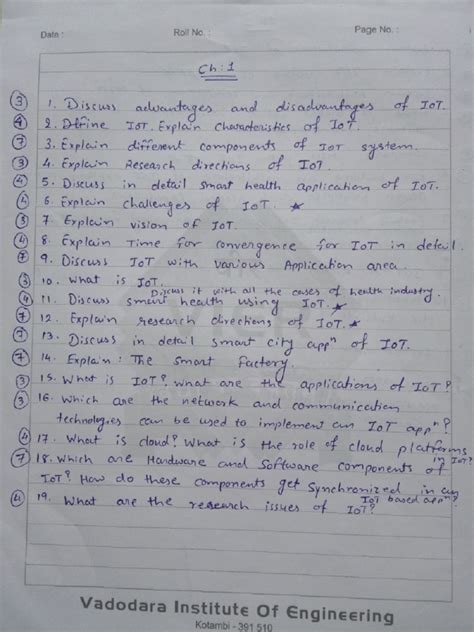 Date : Roll No. : Page No. :
Ch : 1
③ 1. Discuss advantages and disadvantages of IoT.
④ 2. Define IoT. Explain characteristics of IoT.
⑦ 3. Explain different components of IoT system.
③ 4. Explain Research directions of IoT
④ 5. Discuss in detail smart health application of IoT.
④ 6. Explain challenges of IoT. ★
③ 7. Explain vision of IoT.
④ 8. Explain Time for convergence for IoT in detail.
⑦ 9. Discuss IoT with various Application area.
③ 10. What is IoT.
④ 11. Discuss smart health using IoT. ★
Discuss it with all the cases of health industry.
⑦ 12. Explain research directions of IoT. ★
⑦ 13. Discuss in detail smart city appⁿ of IoT.
⑦ 14. Explain : The smart factory.
③ 15. What is IoT? What are the applications of IoT?
③ 16. Which are the network and communication
technologies can be used to implement an IoT appⁿ?
④ 17. What is cloud? What is the role of cloud platforms
in IoT?
⑦ 18. Which are Hardware and Software components of
IoT? How do these components get Synchronized in an
IoT based appⁿ?
④ 19. What are the research issues of IoT?
Vadodara Institute Of Engineering
Kotambi - 391 510